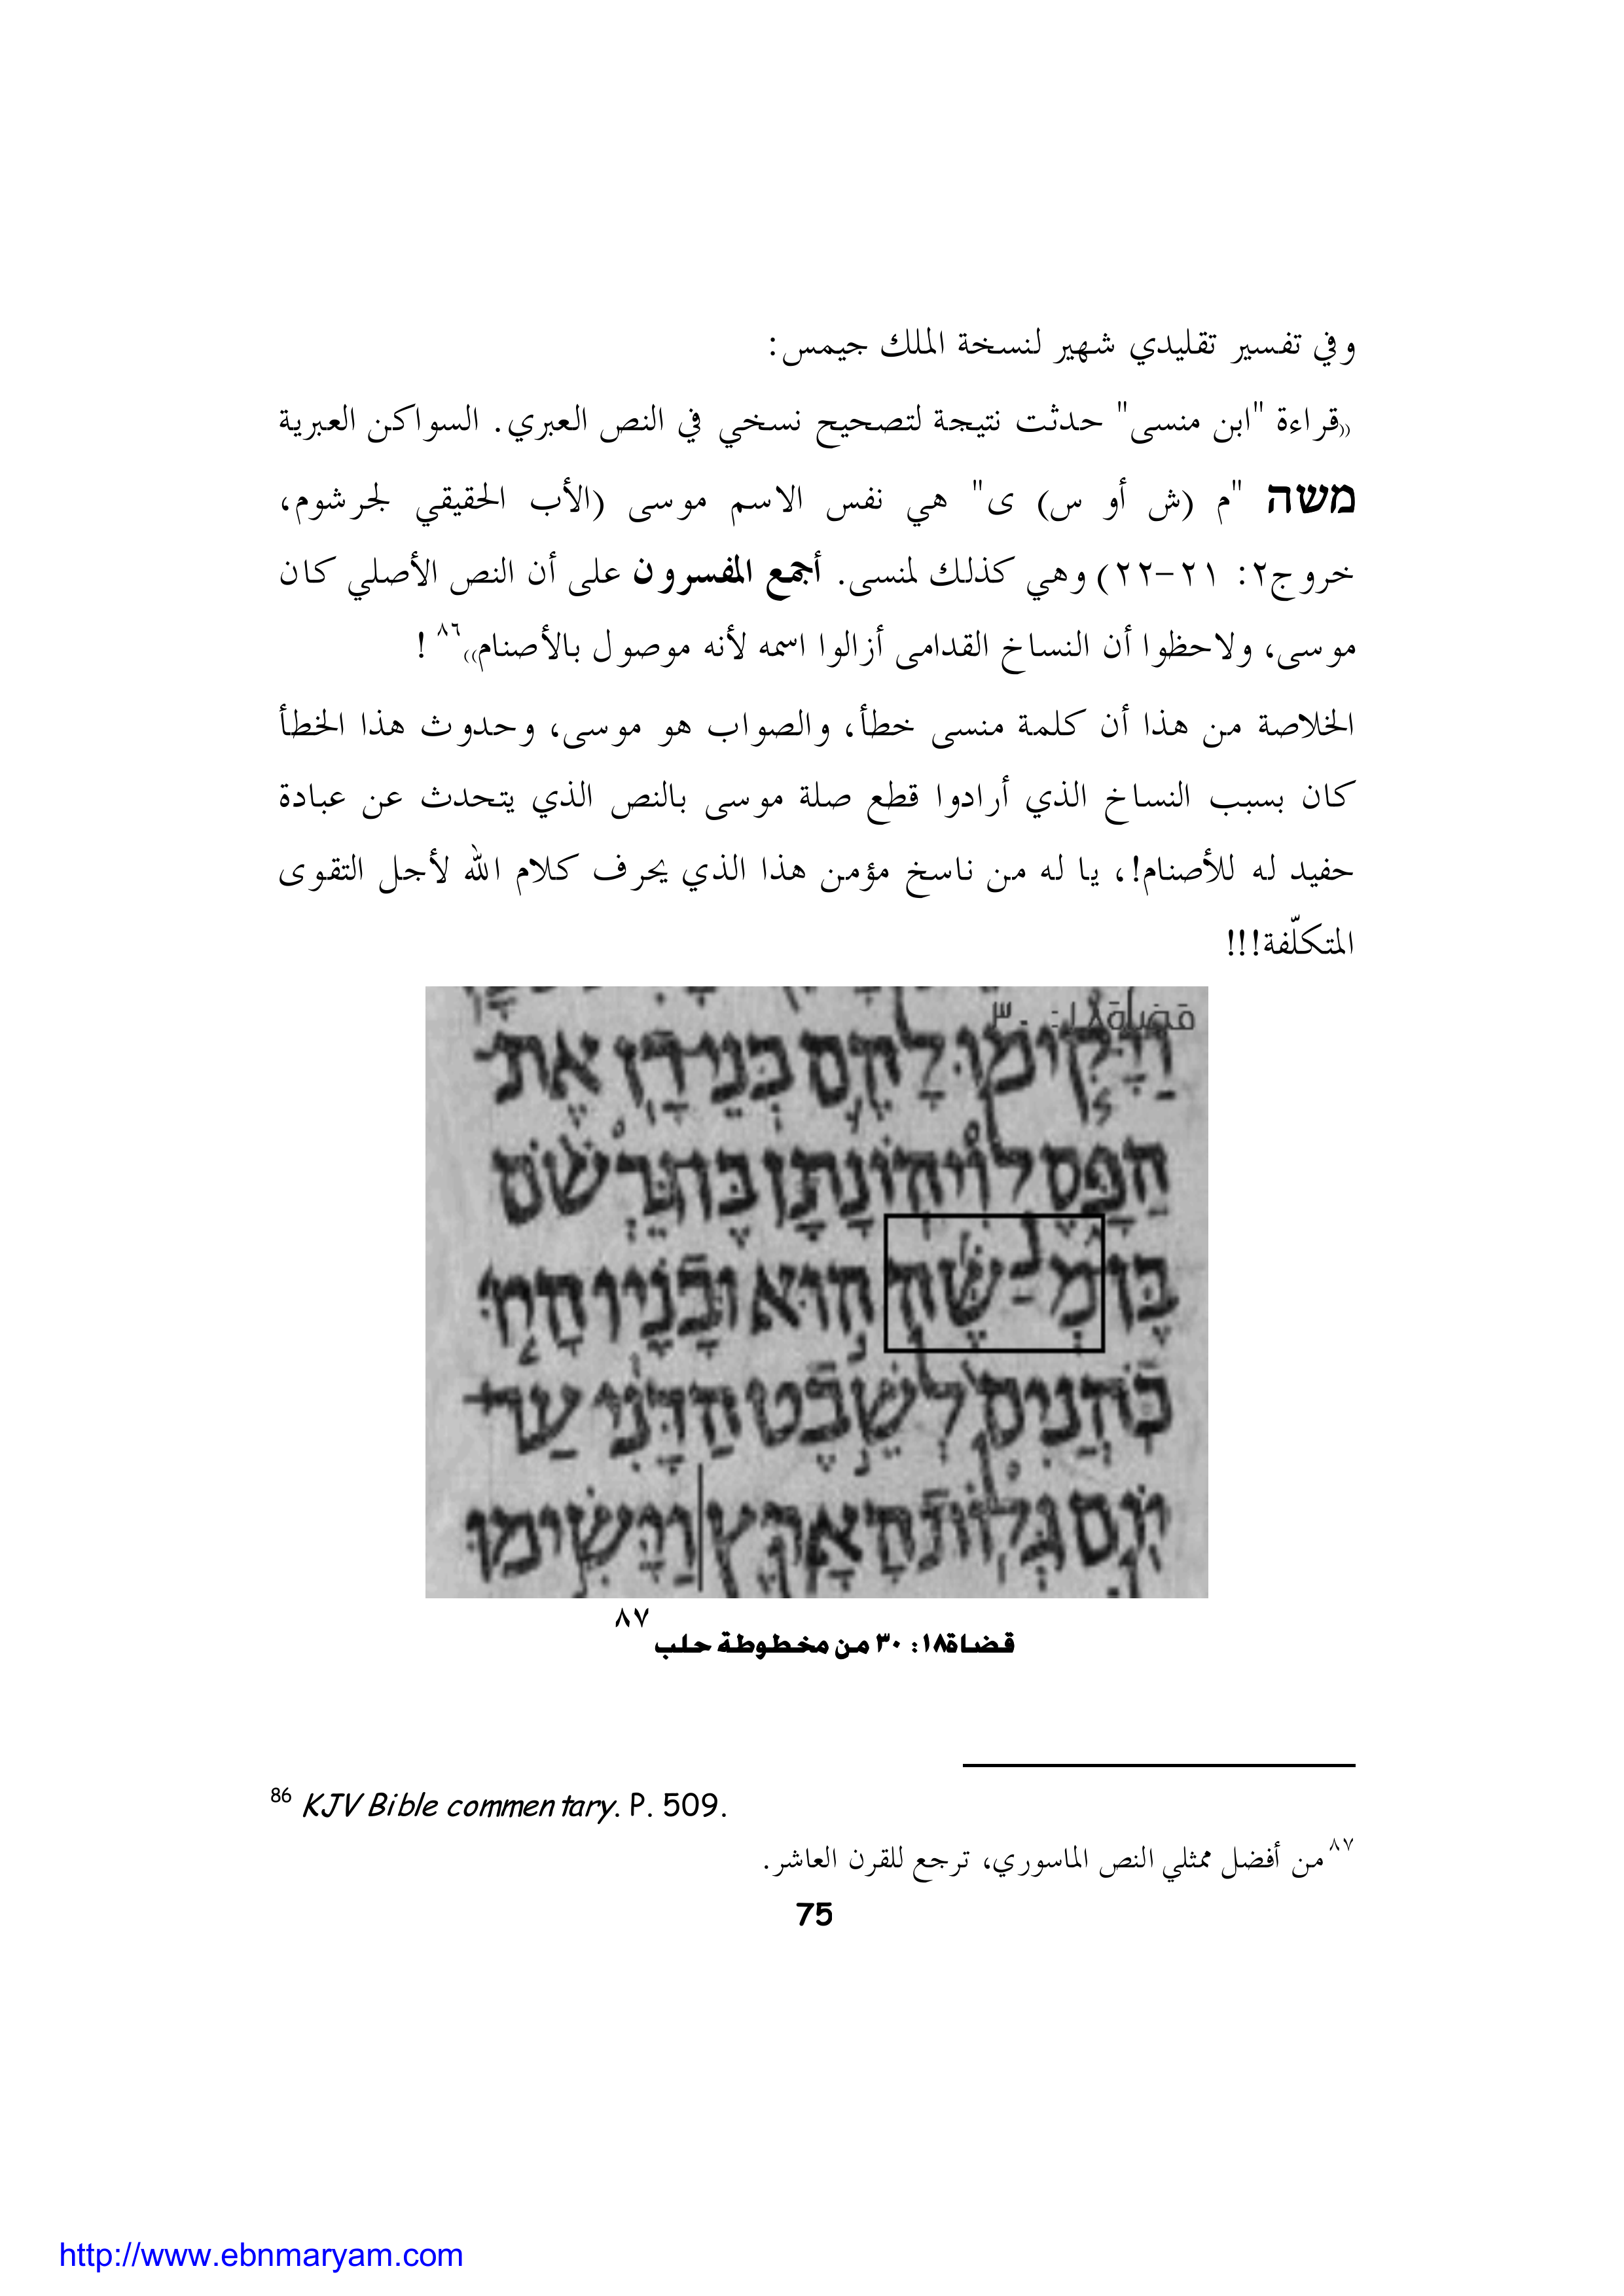 وفي تفسير تقليدي شهير لنسخة الملك جيمس:
((قراءة "ابن منسى" حدثت نتيجة لتصحيح نسخي في النص العبري. السواكن العبرية
משה "م (ش أو س) ى" هي نفس الاسم موسى (الأب الحقيقي لجرشوم،
خروج٢: ٢١-٢٢) وهي كذلك لمنسى. أجمع المفسرون على أن النص الأصلي كان
موسى، ولاحظوا أن النساخ القدامى أزالوا اسمه لأنه موصول بالأصنام))٨٦ !
الخلاصة من هذا أن كلمة منسى خطأ، والصواب هو موسى، وحدوث هذا الخطأ
كان بسبب النساخ الذي أرادوا قطع صلة موسى بالنص الذي يتحدث عن عبادة
حفيد له للأصنام!، يا له من ناسخ مؤمن هذا الذي يحرف كلام الله لأجل التقوى
المتكلّفة!!!
قضاة١٨: ٣٠
וַיָּקִימוּ לָהֶם בְּנֵי דָן אֶת
הַפָּסֶל וִיהוֹנָתָן בֶּן גֵּרְשֹׁם
בֶּן מְנַשֶּׁה הוּא וּבָנָיו הָיוּ
כֹהֲנִים לְשֵׁבֶט הַדָּנִי עַד
יוֹם גְּלוֹת הָאָרֶץ וַיָּשִׂימוּ
قضاة١٨: ٣٠ من مخطوطة حلب ٨٧
86 KJV Bible commentary. P. 509.
٨٧ من أفضل ممثلي النص الماسوري، ترجع للقرن العاشر.
75
http://www.ebnmaryam.com